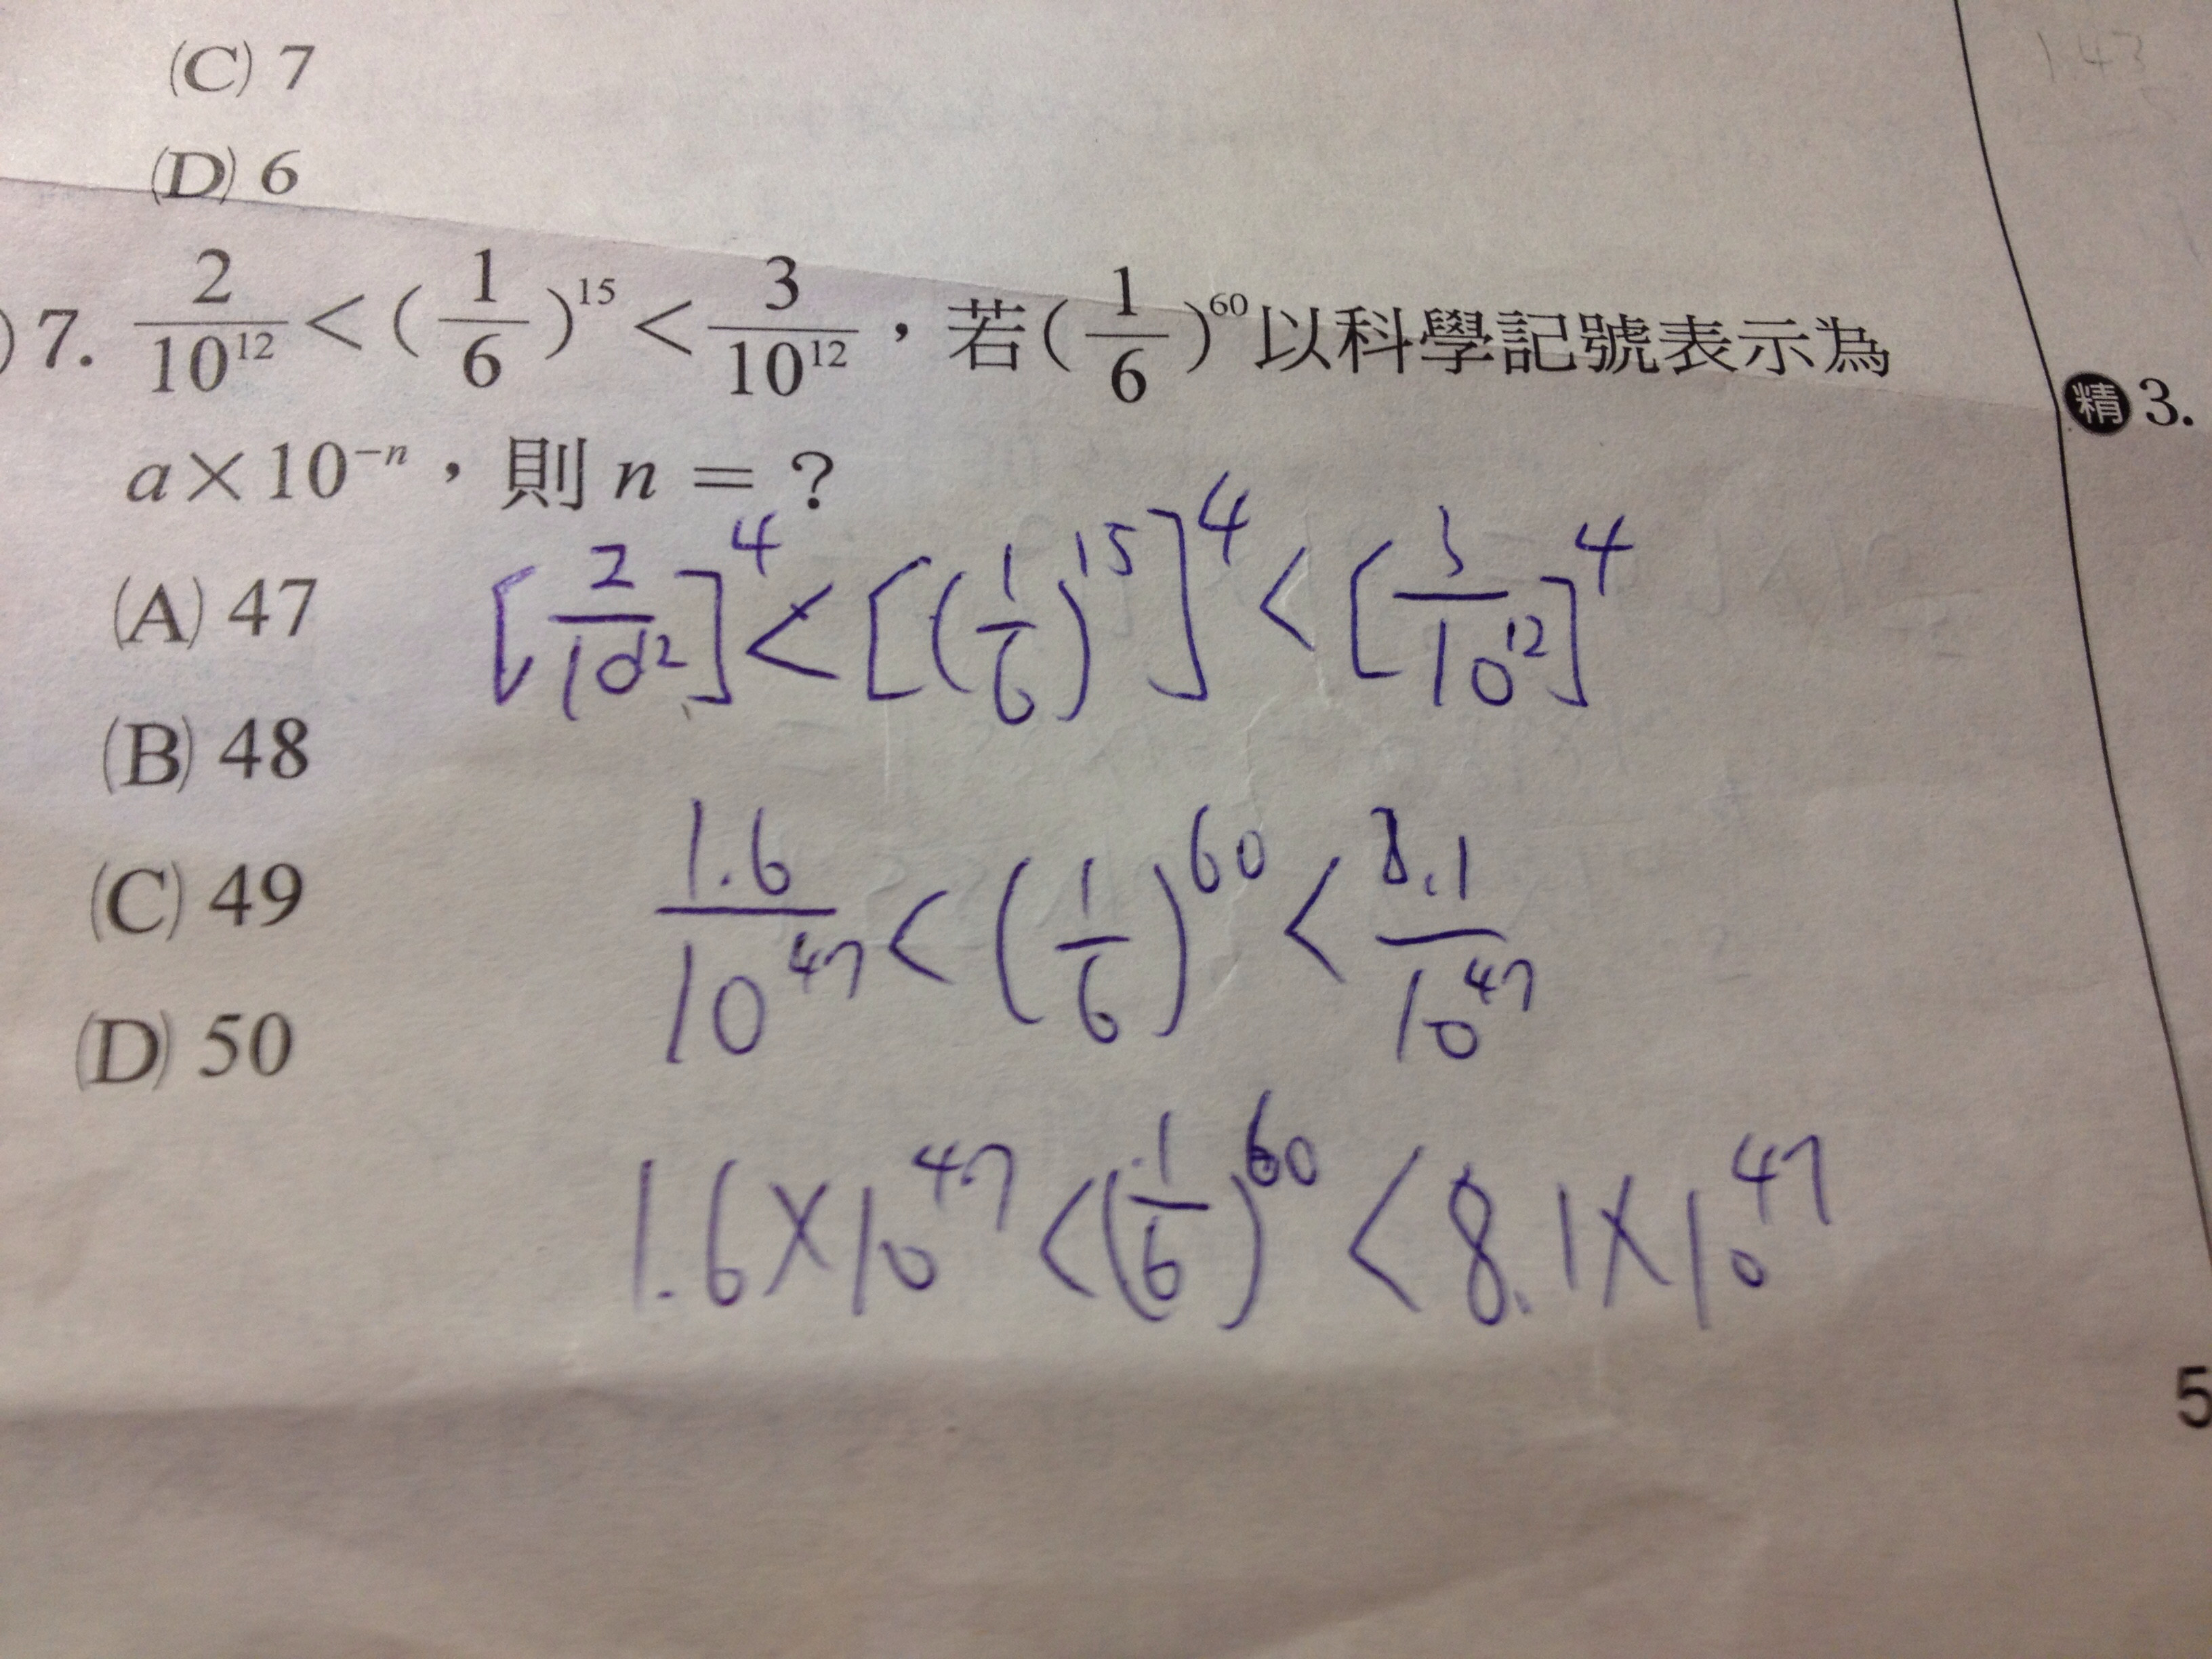 (C) 7
(D) 6
) 7. 2/10¹² < (1/6)¹⁵ < 3/10¹²，若(1/6)⁶⁰以科學記號表示為
a×10⁻ⁿ，則 n = ？
(A) 47
(B) 48
(C) 49
(D) 50
[2/10¹²]⁴ < [(1/6)¹⁵]⁴ < [3/10¹²]⁴
1.6/10⁴⁷ < (1/6)⁶⁰ < 8.1/10⁴⁷
1.6×10⁴⁷ < (1/6)⁶⁰ < 8.1×10⁴⁷
1.43
精 3.
5